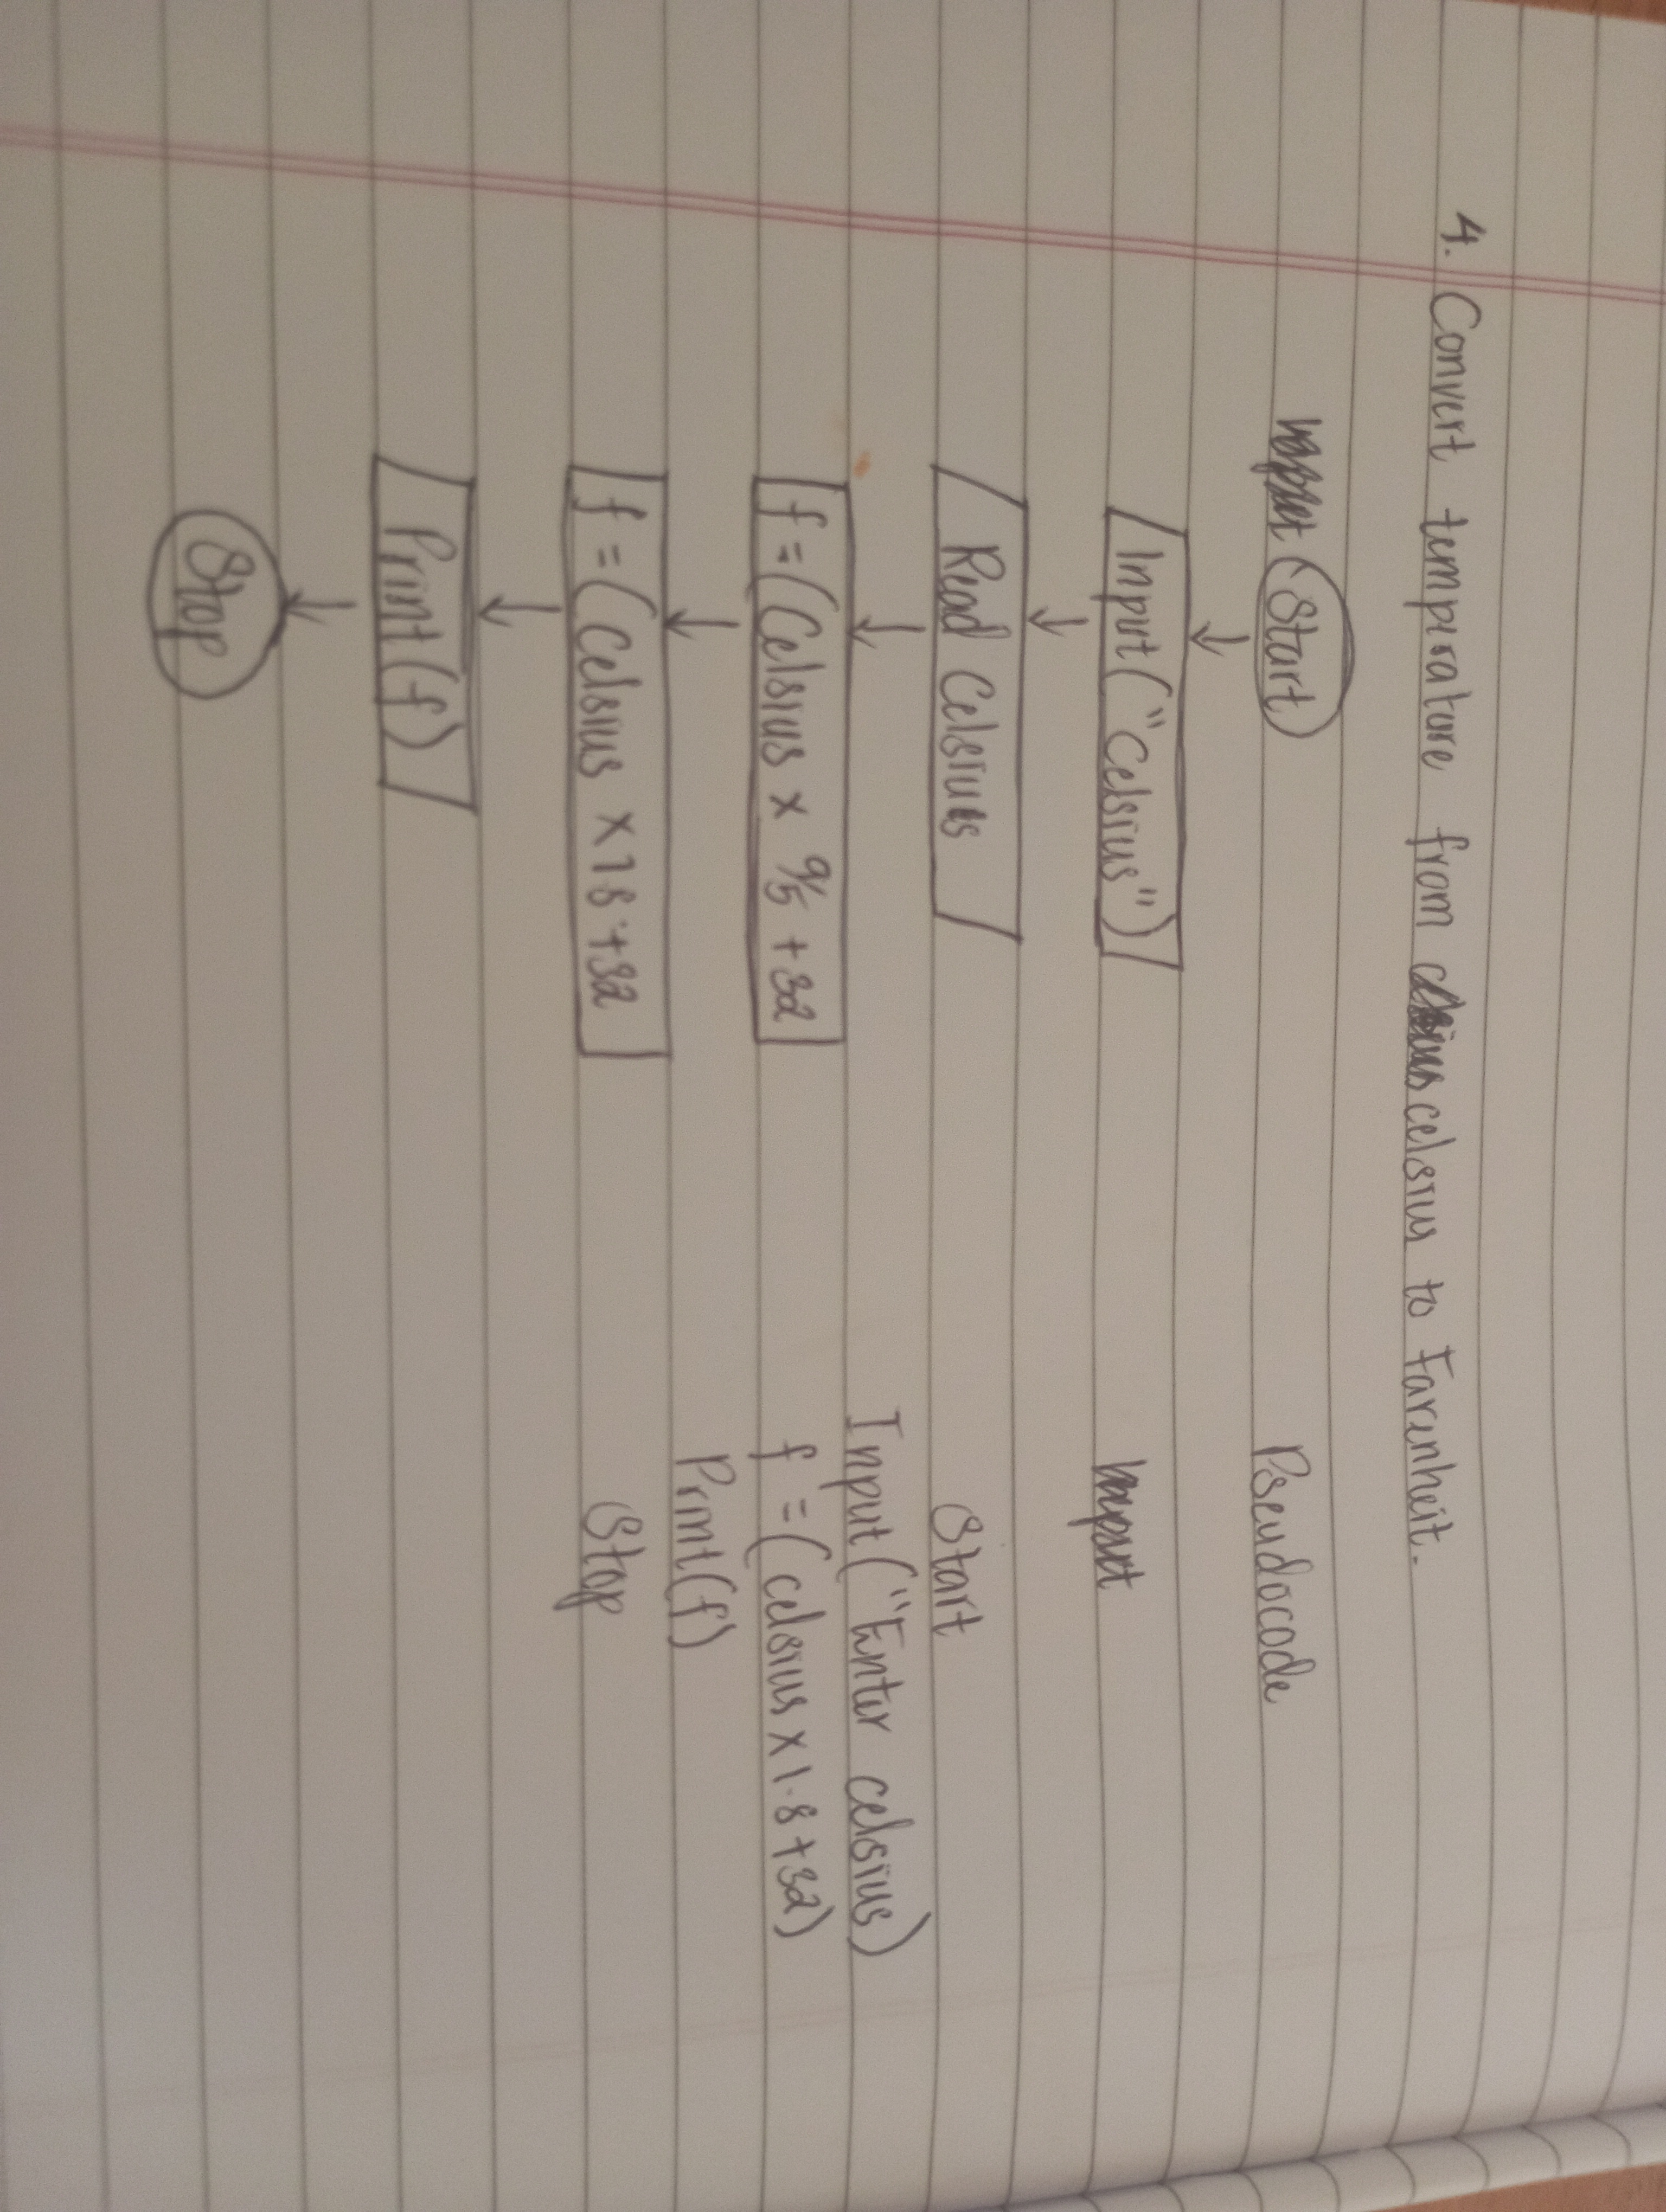 4. Convert temperature from celsius to Farenheit.
Start
Input("Celsius")
Read Celsius
f=(Celsius x 9/5 +32
f=(Celsius x18+32
Print(f)
Stop
Pseudocode
Start
Input("Enter celsius)
f =(celsius x1.8+32)
Print(f)
Stop